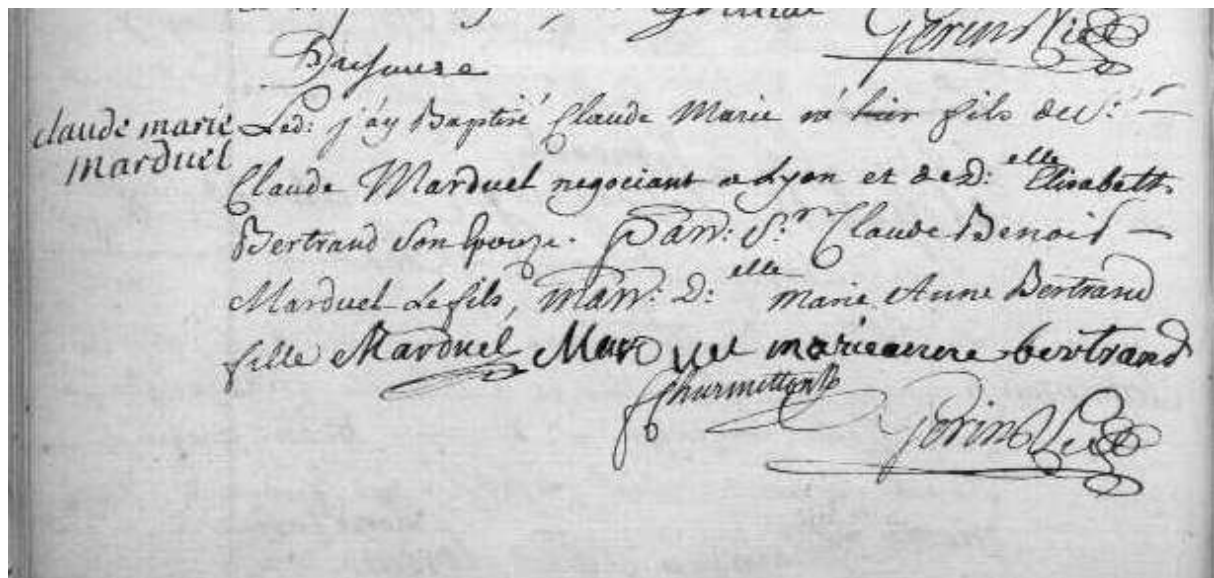 Gorin Vic
claude marie
marduel
Led: j'ay Baptisé Claude Marie né hier fils de S.r
Claude Marduel negociant a Lyon et de D:elle Elisabeth
Bertrand Son Epouze. Parr: S.r Claude Benoit
Marduel Le fils, marr: D:elle marie Anne Bertrand
fille Marduel Marduel marieanne bertrand
Gorin Vic